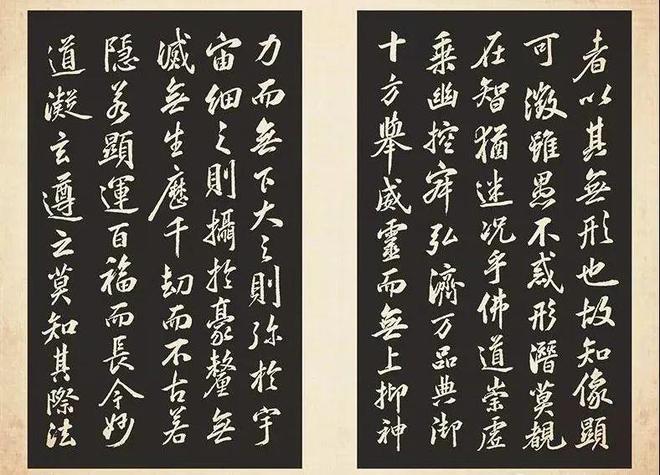 者以其無形也故知像顯
可徵雖愚不惑形潛莫覩
在智猶迷況乎佛道崇虛
乗幽控寂弘濟万品典御
十方舉威靈而無上抑神
力而無下大之則弥於宇
宙細之則攝於豪釐無
滅無生歷千劫而不古若
隱若顯運百福而長今妙
道凝玄遵之莫知其際法